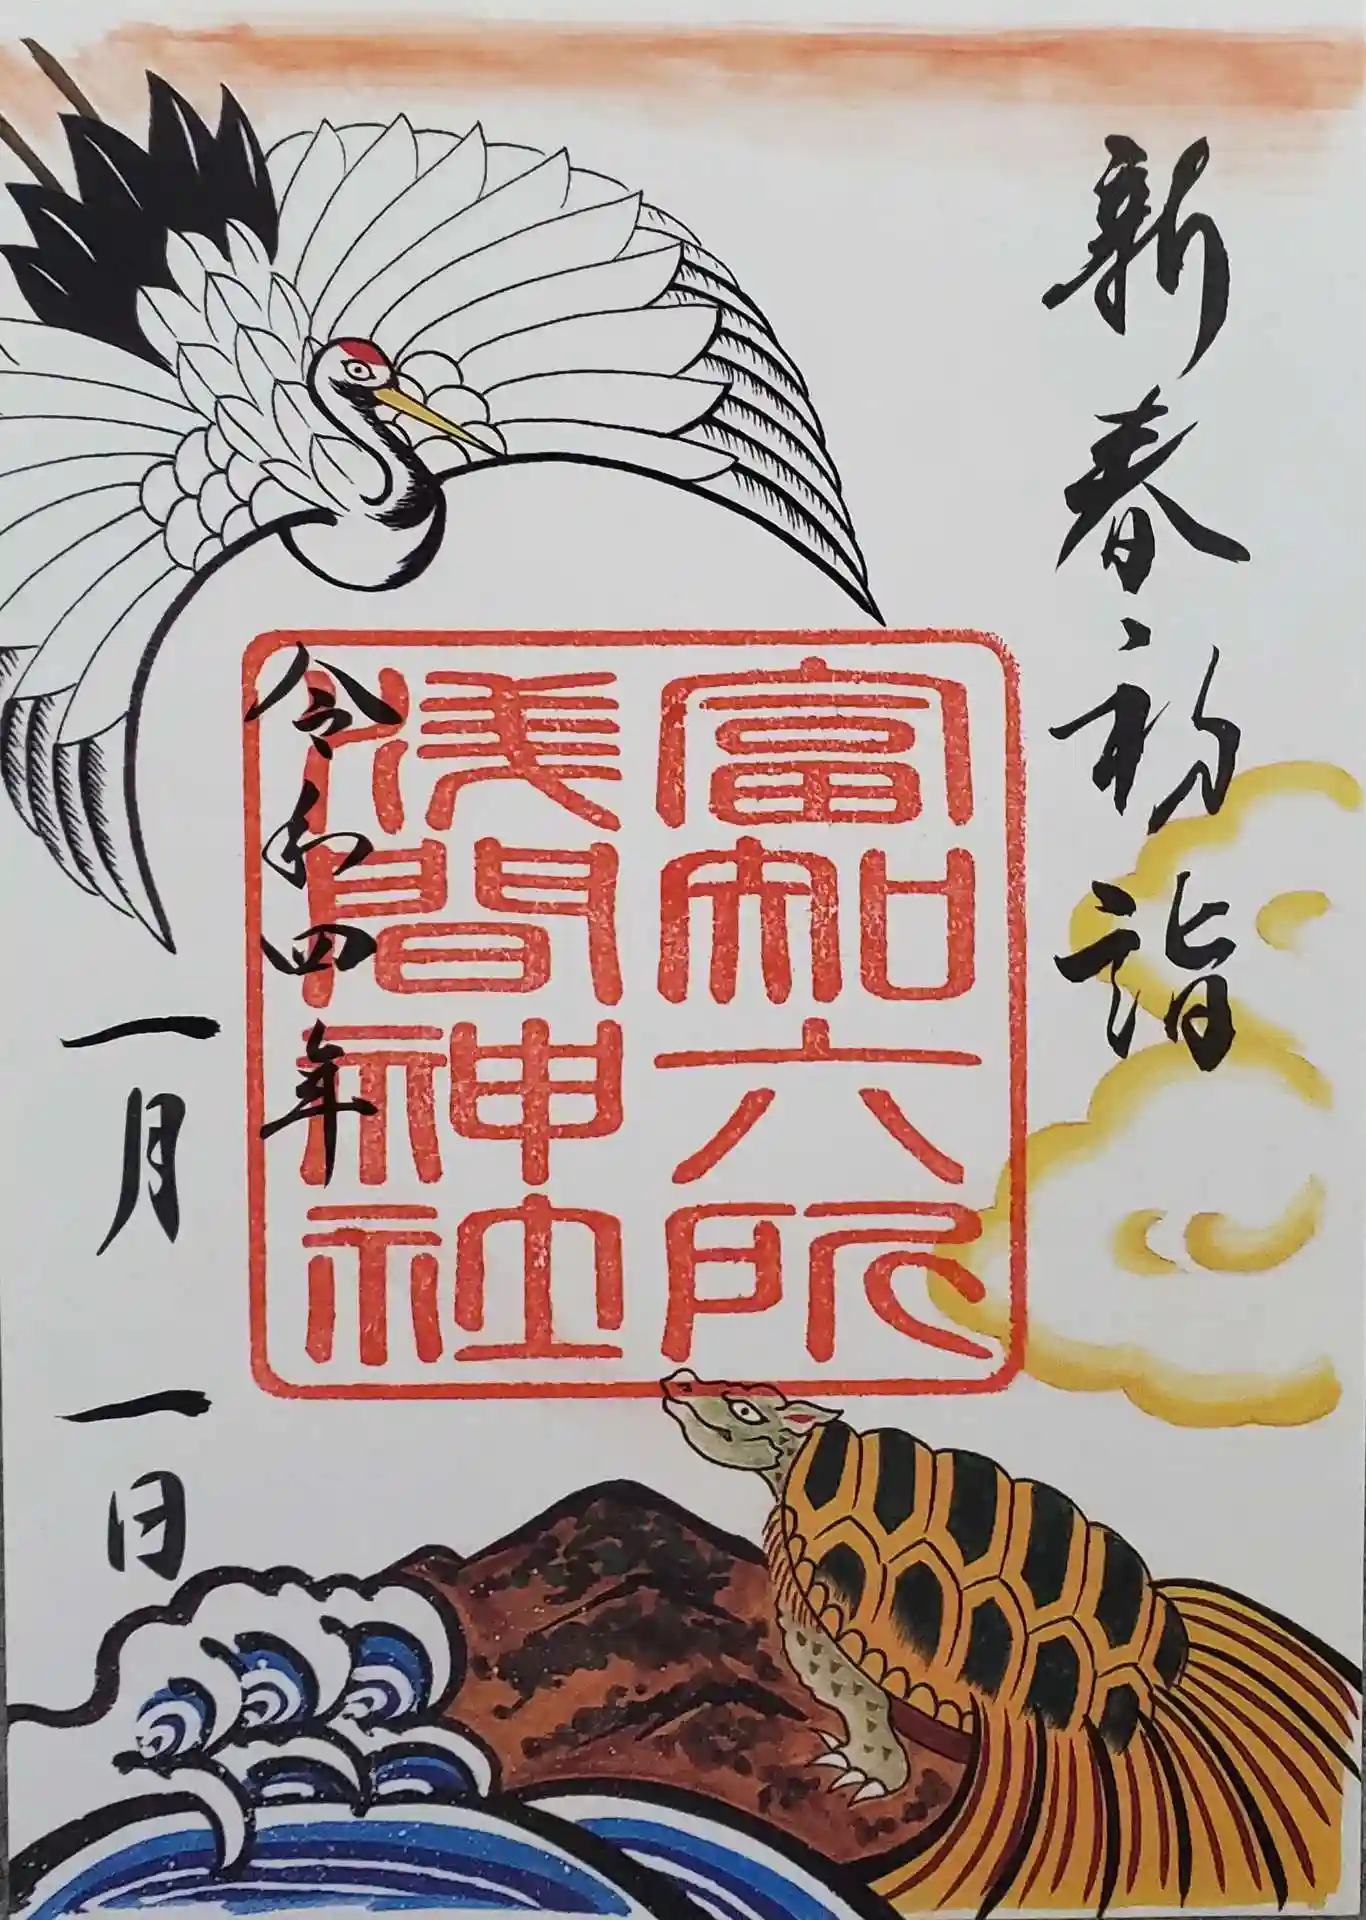 新春初詣
富知六所
浅間神社
令和四年
一月一日